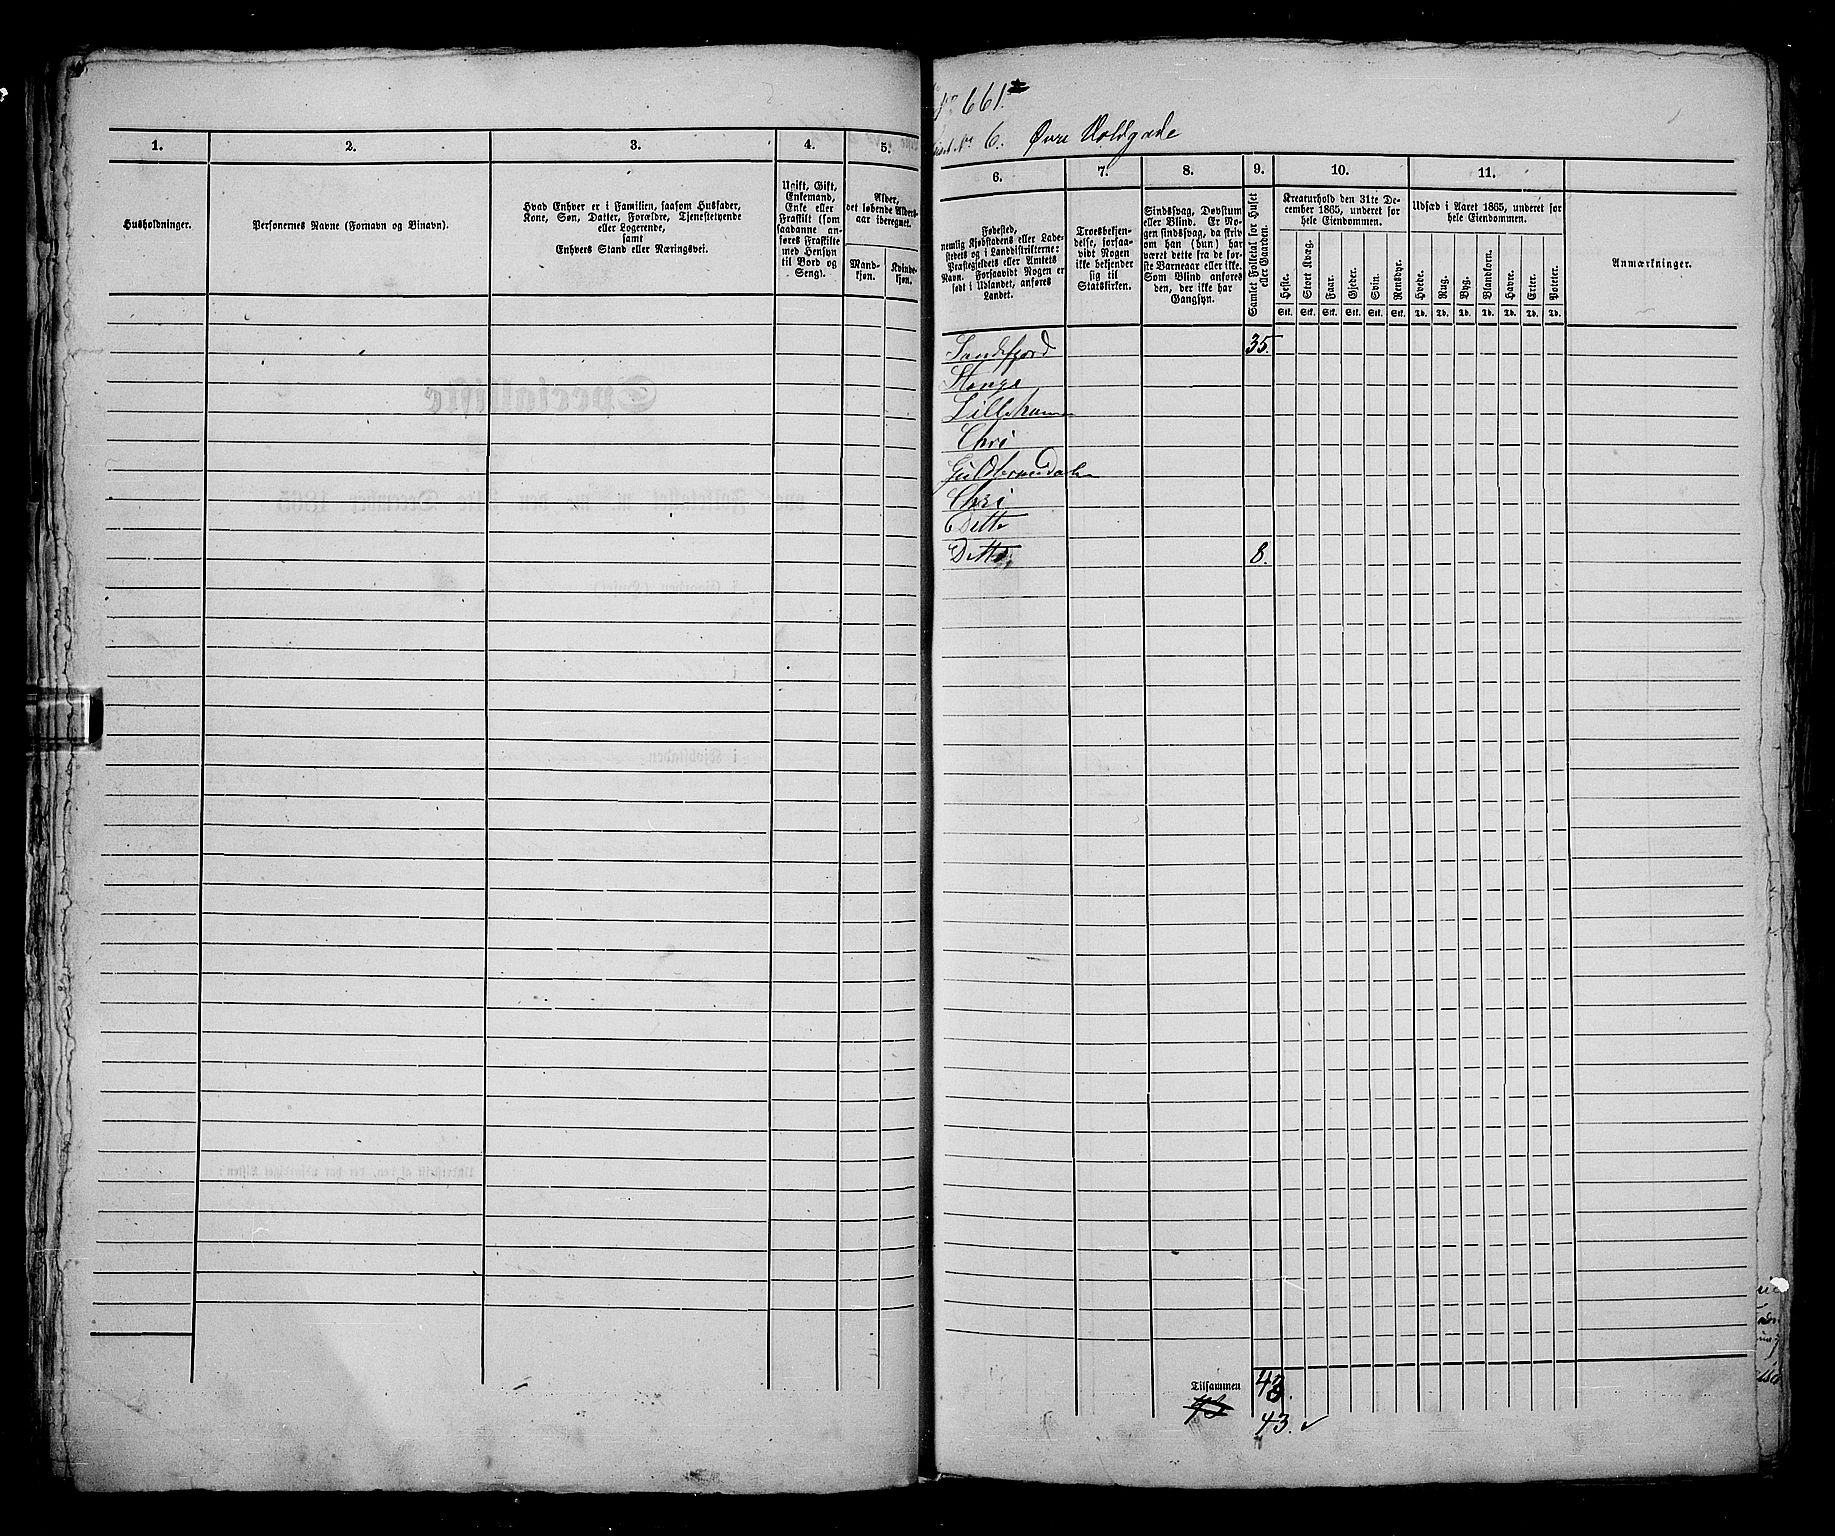 1.
2.
3.
4.
5.
Husholdninger.
Personernes Navne (Fornavn og Binavn).
Hvad Enhver er i Familien, saasom Husfader,
Kone, Søn, Datter, Forældre, Tjenestetyende
eller Logerende,
samt
Enhvers Stand eller Næringsvei.
Ugift, Gift,
Enkemand,
Enke eller
Fraskilt (som
saadanne an-
føres Fraskilte
med Hensyn
til Bord og
Seng).
Alder,
det løbende Alders-
aar iberegnet.
Mand-
kjøn.
Kvinde-
kjøn.
No 661
No 6. Øvre Voldgade
6.
7.
8.
9.
10.
11.
Fødested,
nemlig Kjøbstadens eller Lade-
stedets og i Landdistrikterne:
Præstegjeldets eller Amtets
Navn. Forsaavidt Nogen er
født i Udlandet, anføres
Landet.
Troesbekjen-
delse, forsaa-
vidt Nogen
ikke bekjender
sig til
Statskirken.
Sindssvag, Døvstum
eller Blind. Er No-
gen sindssvag, da skriv
om han (hun) har
været dette fra de før-
ste Barneaar eller ikke.
Som Blind anføres
den, der ikke har
Gangsyn.
Samlet Folketal for Huset
eller Gaarden.
Kreaturhold den 31te De-
cember 1865, underet for
hele Eiendommen.
Heste.
Stort Kvæg.
Faar.
Gjeder.
Svin.
Rensdyr.
Stk. Stk. Stk. Stk. Stk. Stk.
Udsæd i Aaret 1865, underet for
hele Eiendommen.
Hvede.
Rug.
Byg.
Blandkorn.
Havre.
Erter.
Poteter.
Td. Td. Td. Td. Td. Td. Td.
Anmærkninger.
Sandefjord 35.
Stange
Lillehamer
Chri
Gulbrandsdalen
Chri
Ditto
Ditto 8.
Tilsammen 43.
43.